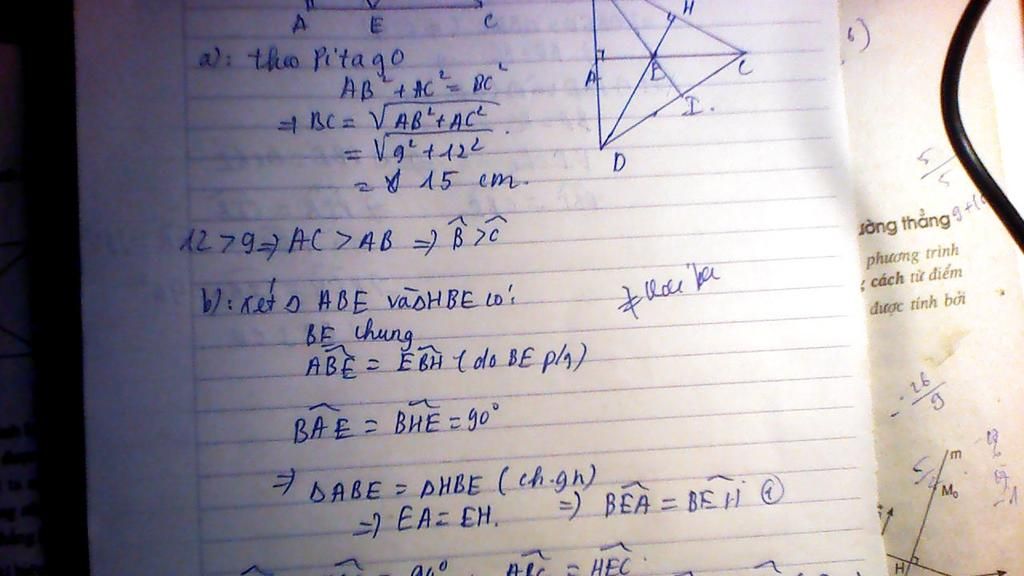 A E C
H
A E C
I
D
a): theo Pitago
AB² + AC² = BC²
=> BC = √AB² + AC²
= √9² + 12²
= 15 cm.
12 > 9 => AC > AB => B̂ > Ĉ
b): xét Δ ABE và ΔHBE có:
BE chung
ABE = EBH (do BE p/g)
BAE = BHE = 90°
=> ΔABE = ΔHBE (ch.gn)
=> EA = EH. => BEA = BEH ①
= 90° ABC = HEC
6)
5/5
ường thẳng 9+1
phương trình
cách từ điểm
được tính bởi
-26/9
m
M₀
H